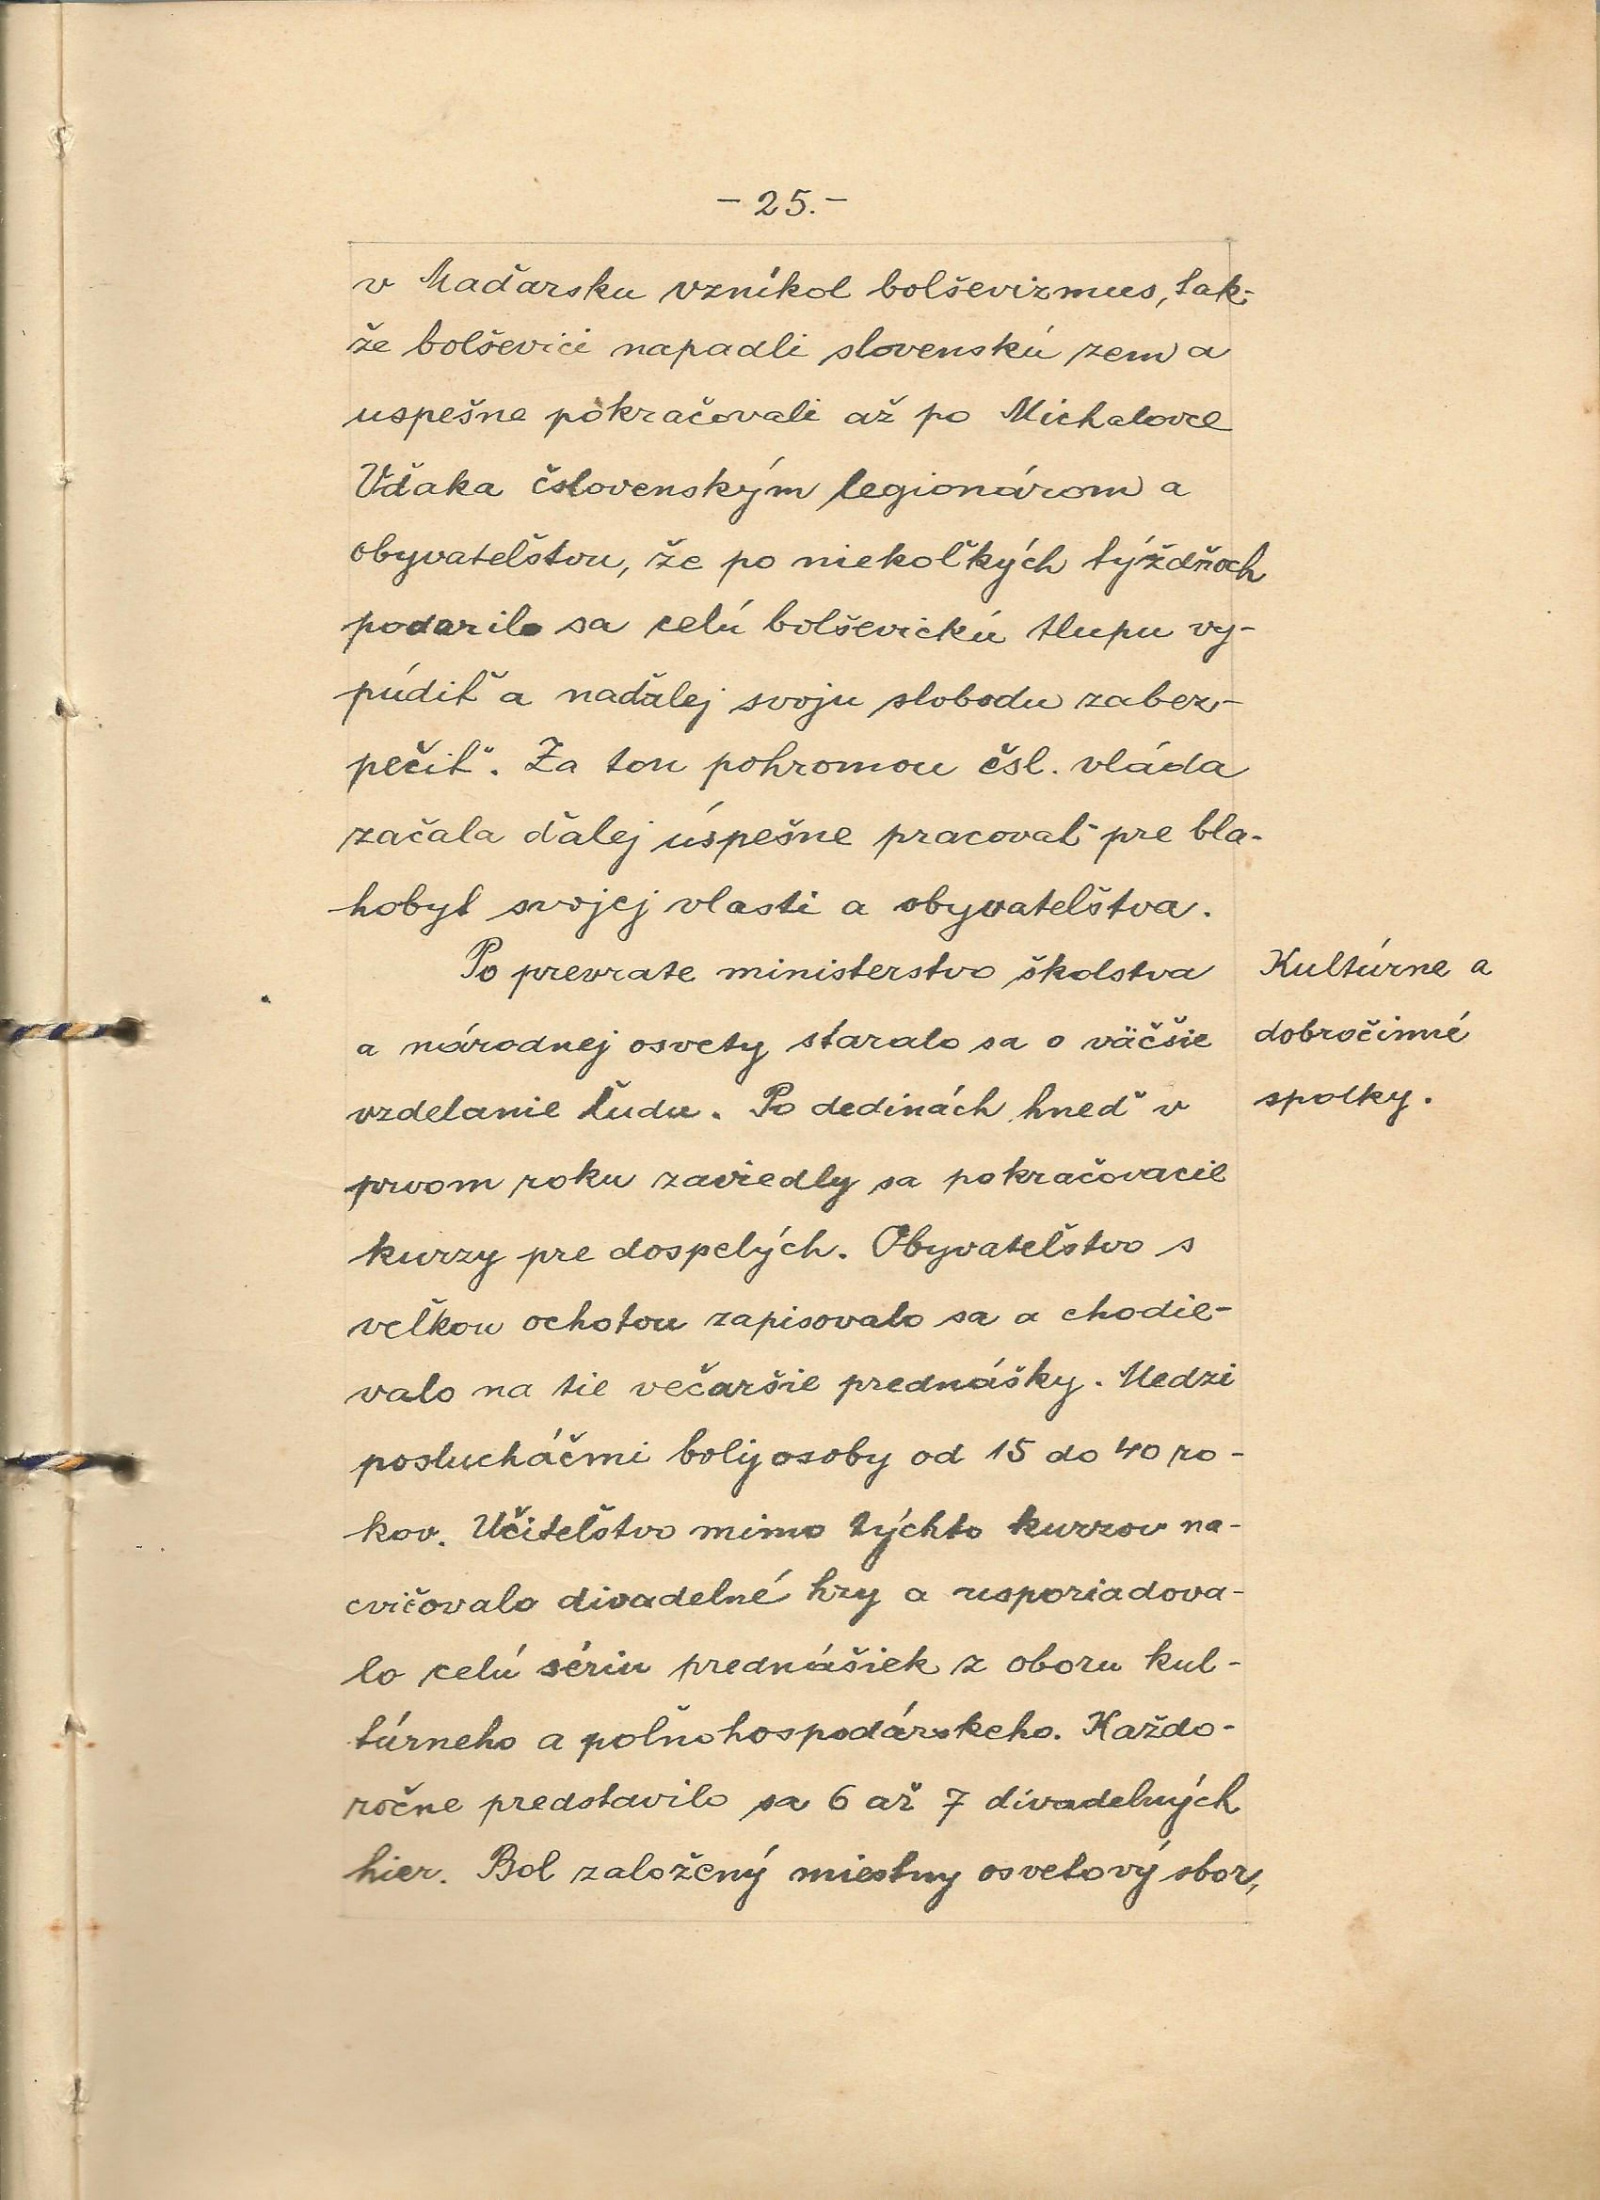 - 25. -
v Maďarsku vznikol bolševizmus, tak-
že bolševici napadli slovenskú zem a
uspešne pokračovali až po Michalovce
Vďaka čslovenským legionárom a
obyvateľstvu, že po niekoľkých týždňoch
podarilo sa celú bolševickú tlupu vy-
púdiť a naďalej svoju slobodu zabez-
pečiť. Za tou pohromou čsl. vláda
začala ďalej úspešne pracovať pre bla-
hobyt svojej vlasti a obyvateľstva.
Po prevrate ministerstvo školstva
a národnej osvety staralo sa o väčšie
vzdelanie ľudu. Po dedinách hneď v
prvom roku zaviedly sa pokračovacie
kurzy pre dospelých. Obyvateľstvo s
veľkou ochotou zapisovalo sa a chodie-
valo na tie večaršie prednášky. Medzi
poslucháčmi boly osoby od 15 do 40 ro-
kov. Učiteľstvo mimo týchto kurzov na-
cvičovalo divadelné hry a usporiadova-
lo celú sériu prednášiek z oboru kul-
túrneho a poľnohospodárskeho. Každo-
ročne predstavilo sa 6 až 7 divadelných
hier. Bol založený miestny osvetový sbor,
Kultúrne a
dobročinné
spolky.